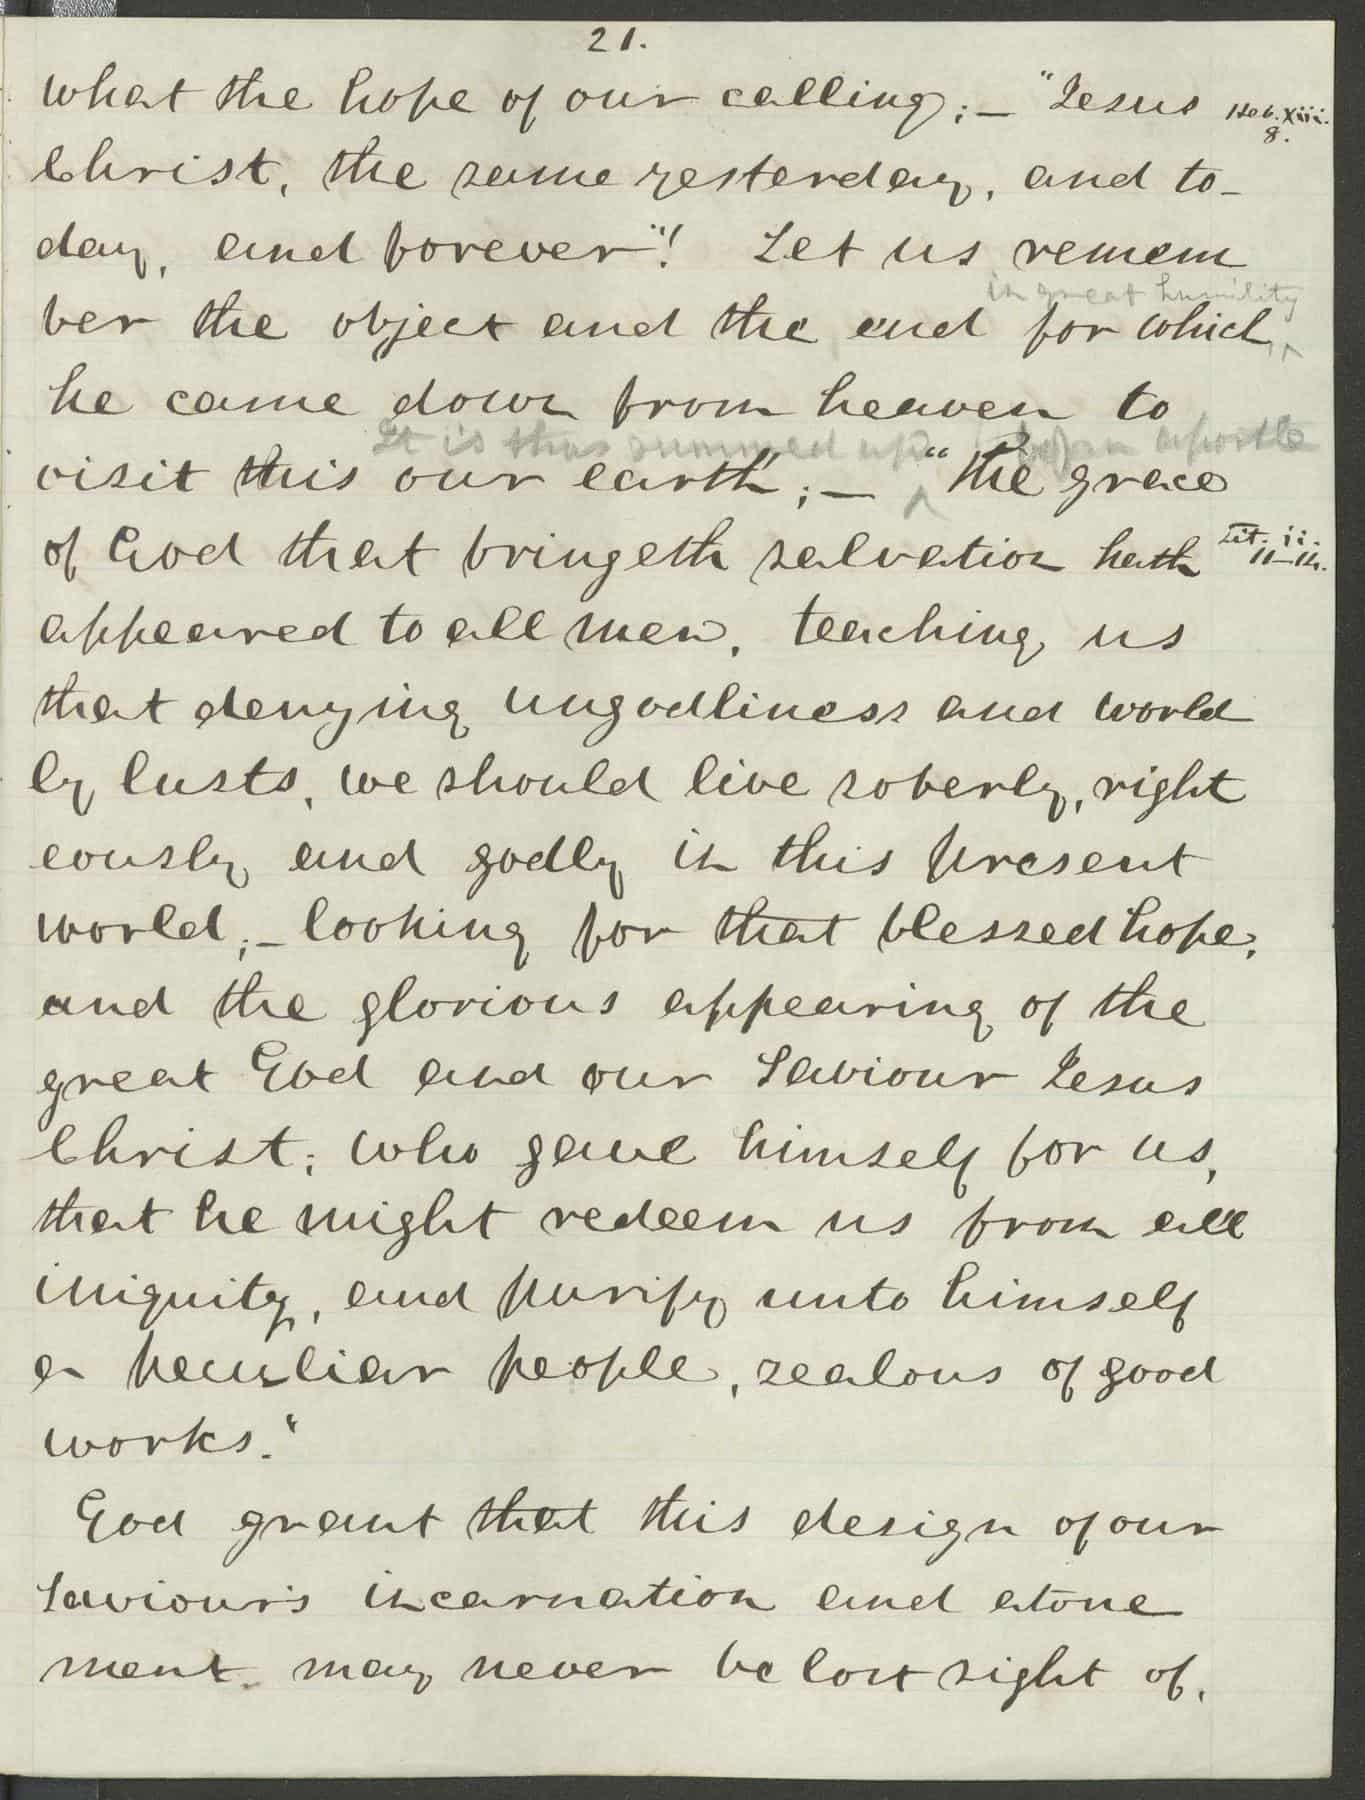 21.
what the hope of our calling; — "Jesus Heb. xiii.
8.
Christ, the same yesterday, and to-
day, and forever"! Let us remem
in great humility
ber the object and the end for which ^
he came down from heaven to
It is thus summed up by an apostle
visit this our earth; — ^ "The grace
of God that bringeth salvation hath Tit. ii.
11–14.
appeared to all men, teaching us
that denying ungodliness and world
ly lusts, we should live soberly, right
eously and godly in this present
world; — looking for that blessed hope,
and the glorious appearing of the
great God and our Saviour Jesus
Christ; who gave himself for us,
that he might redeem us from all
iniquity, and purify unto himself
a peculiar people, zealous of good
works."
God grant that this design of our
Saviour's incarnation and atone
ment may never be lost sight of,